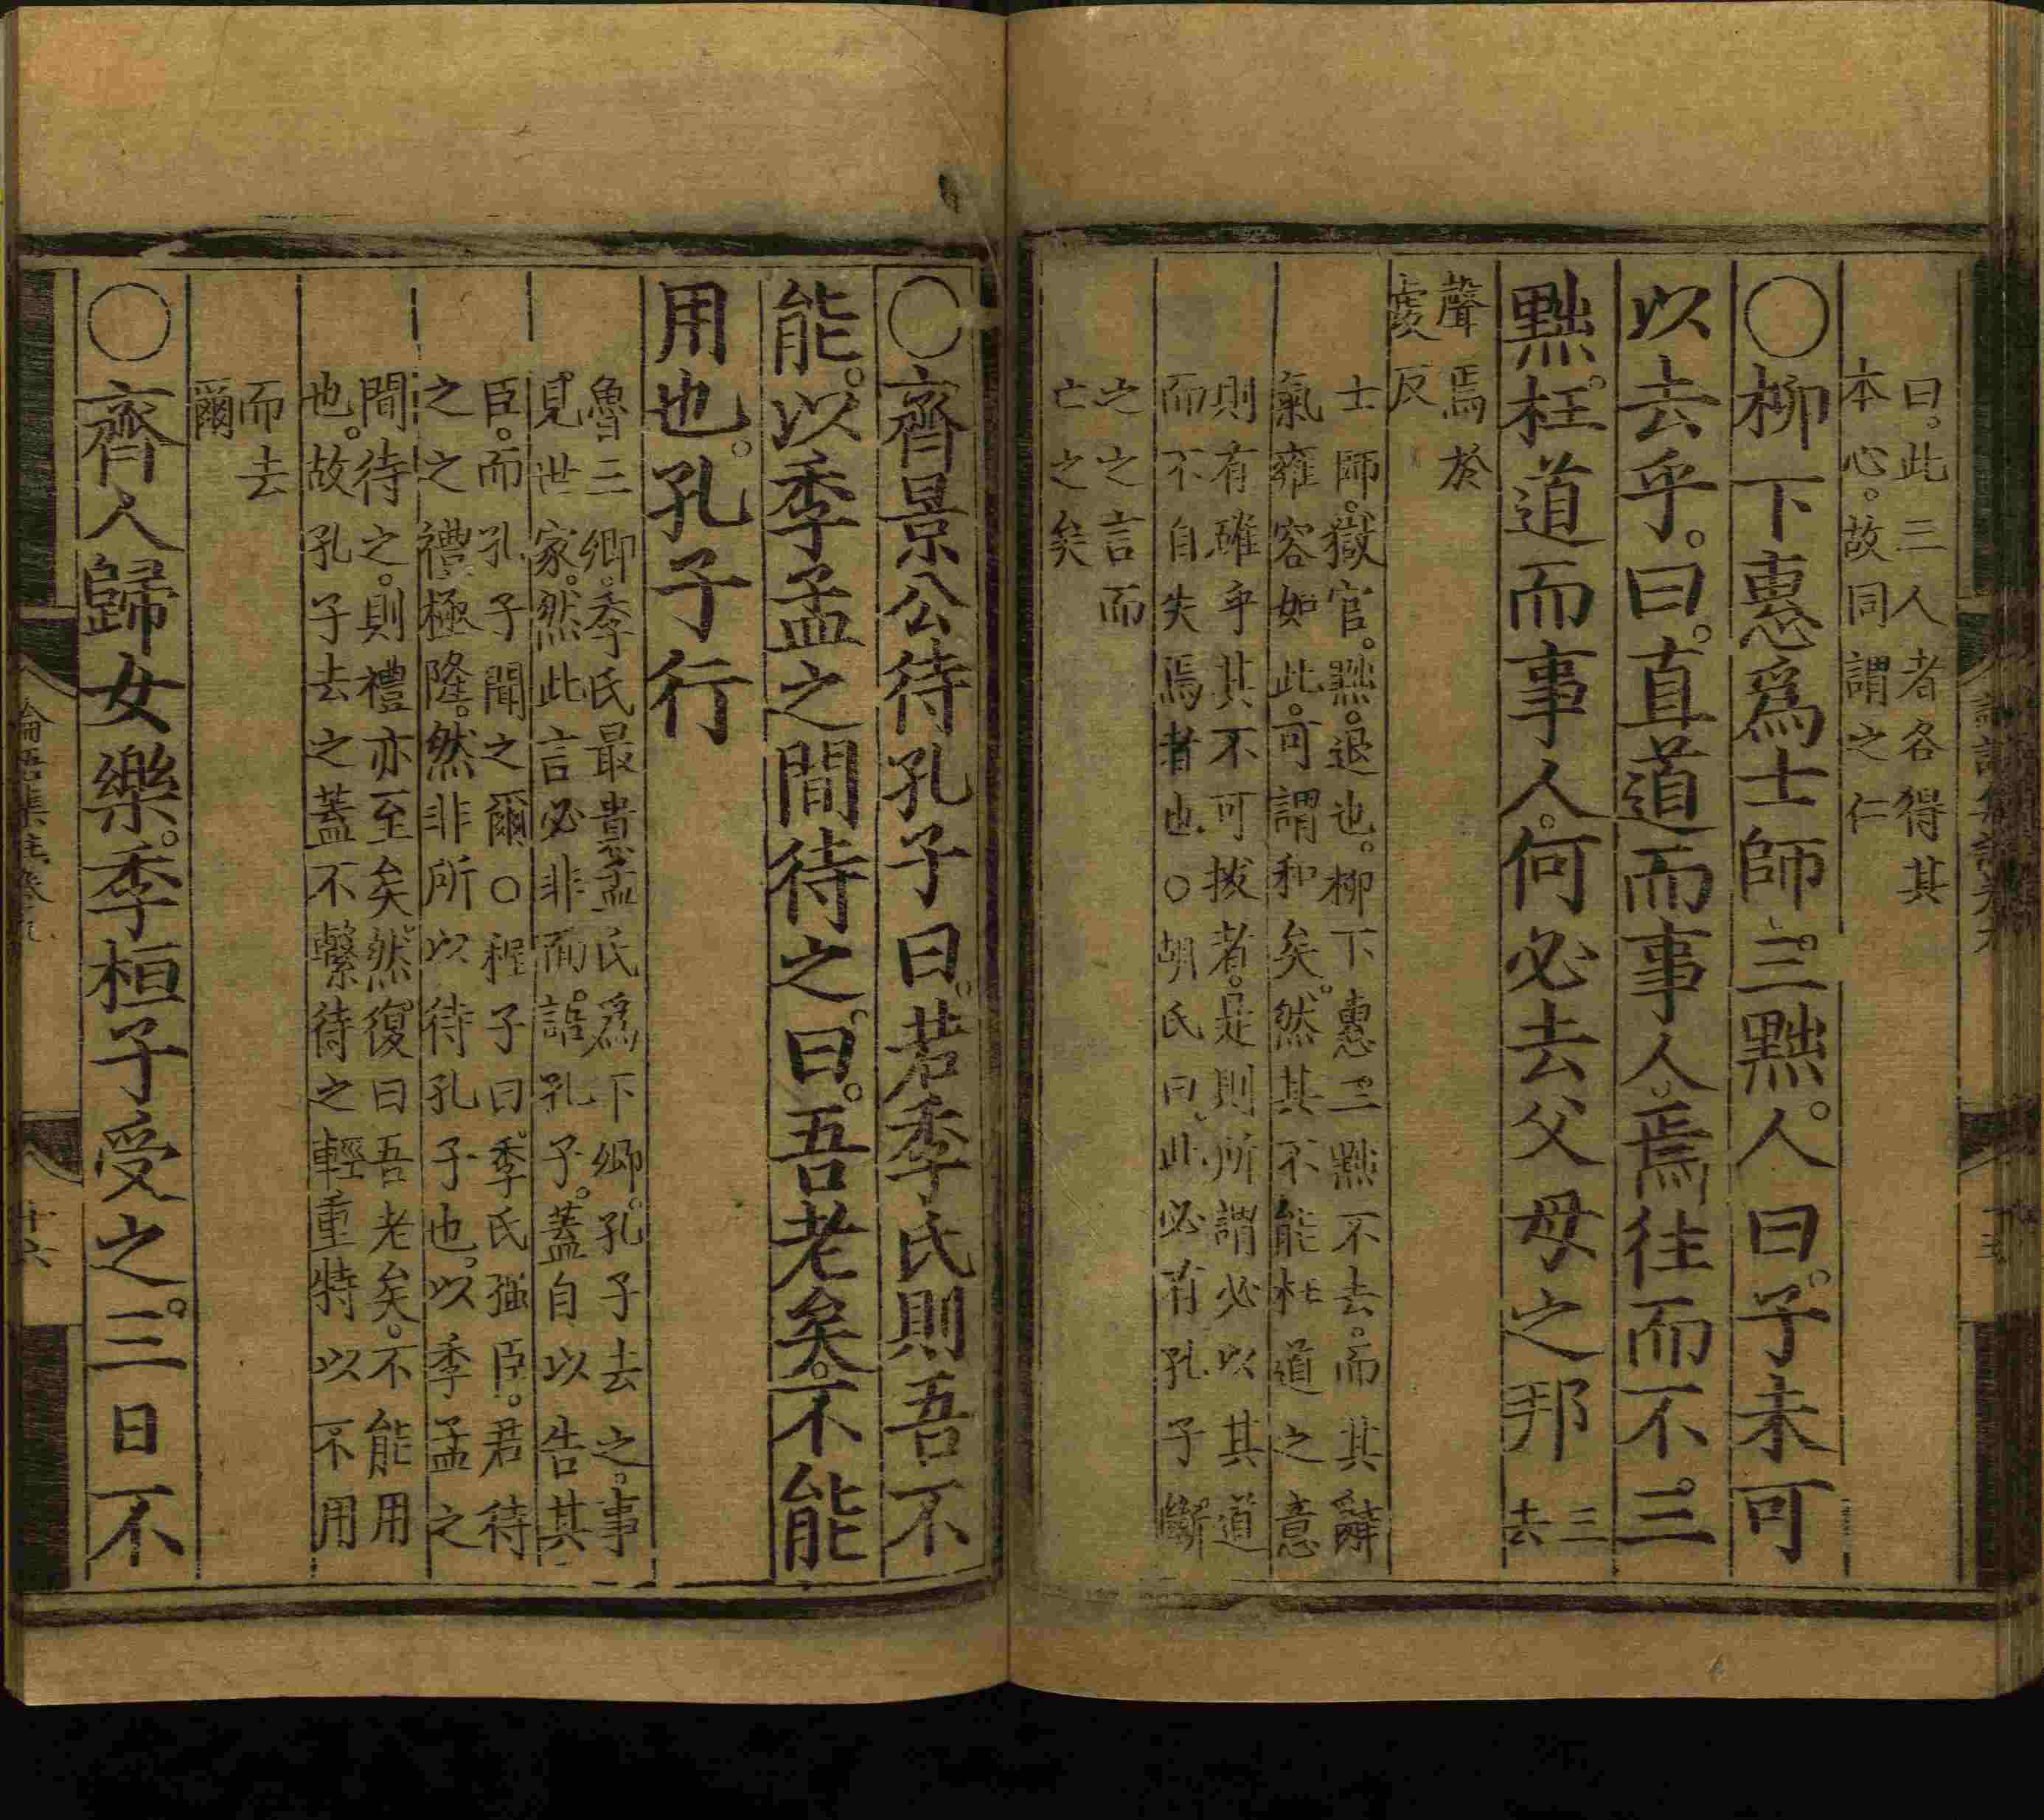 曰。此三人者各得其
本心。故同謂之仁
○柳下惠爲士師。三黜。人曰。子未可
以去乎。曰。直道而事人。焉往而不。三
黜。枉道而事人。何必去父母之邦三
去
聲焉於
虔反
士師。獄官。黜。退也。柳下惠三黜不去。而其辭
氣雍容如此。可謂和矣。然其不能枉道之意
則有確乎其不可拔者。是則所謂必以其道
而不自失焉者也○胡氏曰。此必有孔子斷
之之言而
亡之矣
○齊景公待孔子曰。若季氏則吾不
能。以季孟之間待之。曰。吾老矣。不能
用也。孔子行
魯三卿。季氏最貴。孟氏爲下卿。孔子去之。事
見世家。然此言必非面語孔子。蓋自以告其
臣。而孔子聞之爾○程子曰。季氏强臣。君待
之之禮極隆。然非所以待孔子也。以季孟之
間待之。則禮亦至矣。然復曰吾老矣。不能用
也。故孔子去之蓋不繫待之輕重特以不用
而去
爾
○齊人歸女樂。季桓子受之。三日不
論語集註卷九
十六